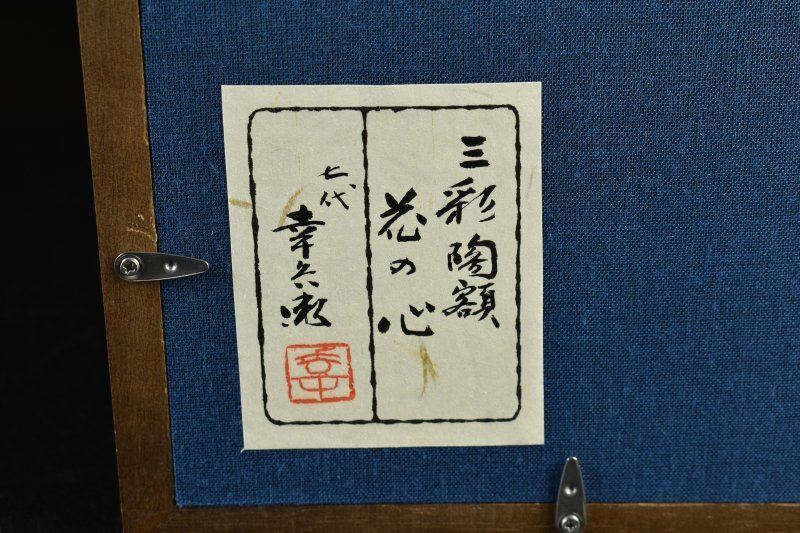 三彩陶額
花の心
七代
幸兵衛
幸